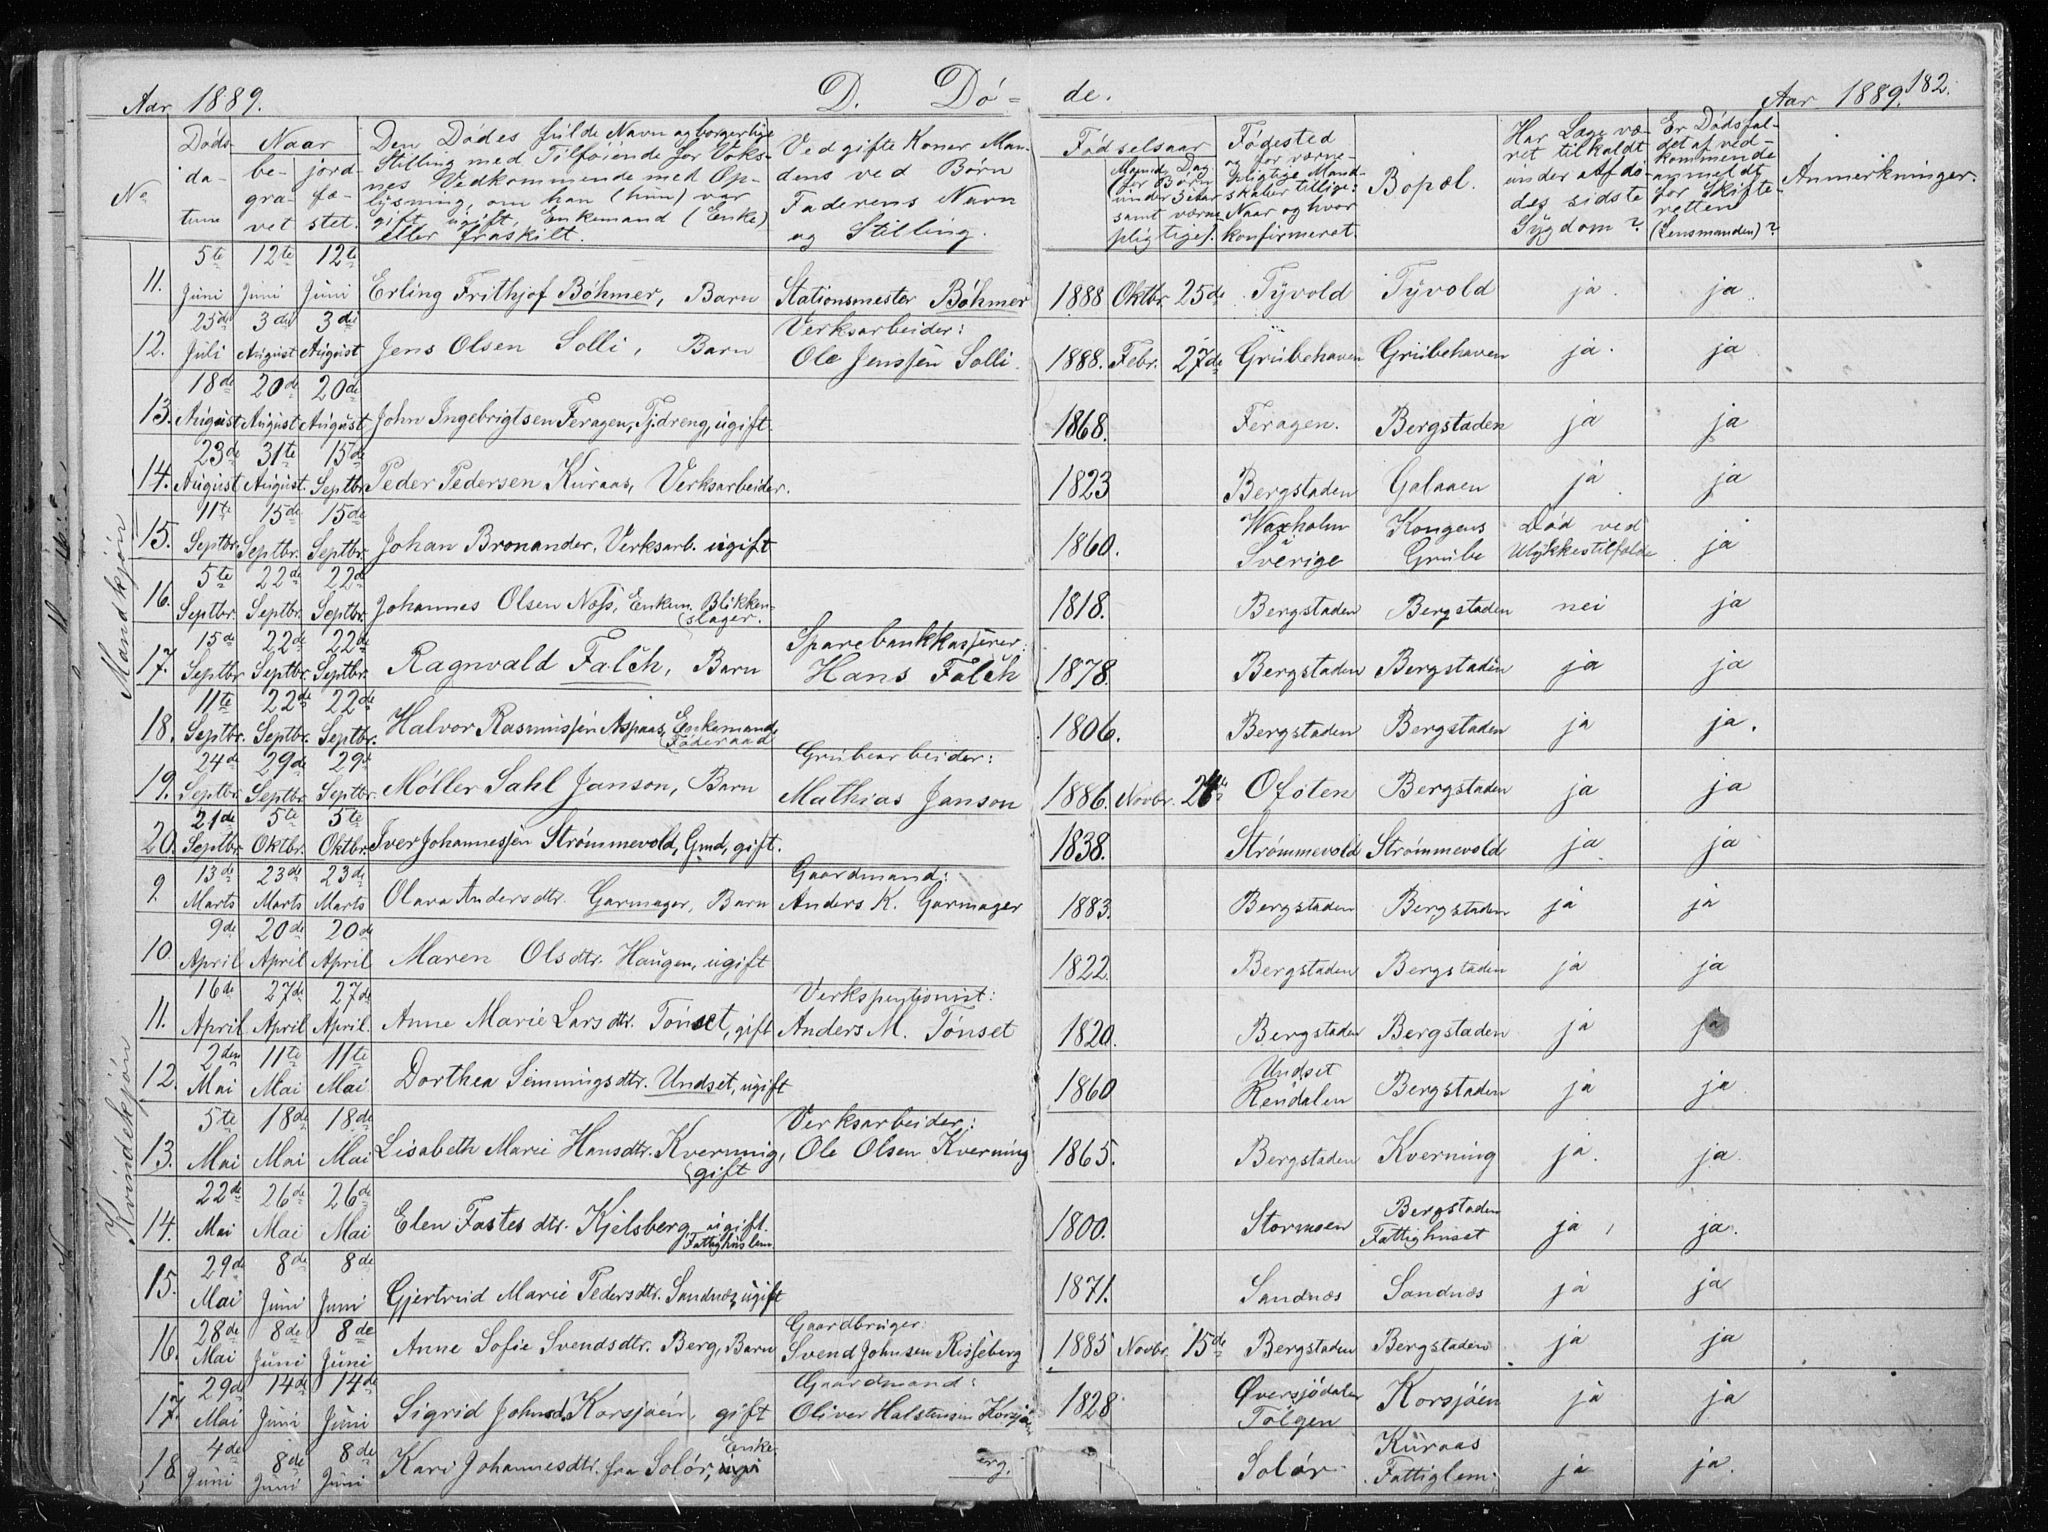 Aar 1889. D. Dö- de. Aar 1889. 182.
No
Döds-datum
Naar begravet jordfæstet.
Den Dödes fulde Navn og borgerlige
Stilling med Tilföiende for Voks-
nes Vedkommende med Op-
lysning, om han (hun) var
gift, ugift, Enkemand (Enke)
eller fraskilt.
Ved gifte Koner Man-
dens ved Börn
Faderens Navn
og Stilling.
Födselsaar
Maaned, Dag
(for Börn
under 3 Aar
samt værne-
pligtige).
Födested
og for værne-
pligtige Mand-
skaber tillige:
Naar og hvor
konfirmeret.
Bopæl.
Har Læge væ-
ret tilkaldt
under Afdö-
des sidste
Sygdom?
Er Dödsfal-
det af ved-
kommende
anmeldt
for Skifte-
retten
(Lensmanden)?
Anmerkninger.
Mandkjön
11. 5te Juni 12te Juni 12te Juni Erling Frithjof Böhmer, Barn Stationsmester Böhmer 1888 Oktbr. 25de Tyvold Tyvold ja. ja.
12. 25de Juli 3die August 3die August Jens Olsen Solli, Barn Verksarbeider: Ole Jenssen Solli. 1888. Febr. 27de Grubehaven Grubehaven ja. ja
13. 18de August 20de August 20de August John Ingebrigtsen Feragen, Tj.dreng, ugift. 1868. Feragen. Bergstaden ja ja
14. 23de August 31te August. 15de Septbr. Peder Pedersen Kuraas, Verksarbeider. 1823 Bergstaden Galaaen ja ja
15. 11te Septbr. 15de Septbr. 15de Septbr. Johan Bronander, Verksarb. ugift 1860. Waxholm i Sverige Kongens Grube Död ved Ulykkestilfælde ja
16. 5te Septbr. 22de Septbr. 22de Septbr. Johannes Olsen Næss, Enkem. Blikkenslager. 1818. Bergstaden Bergstaden nei ja
17. 15de Septbr 22de Septbr. 22de Septbr. Ragnvald Falch, Barn Sparebankkasserer: Hans Falch 1878. Bergstaden Bergstaden ja ja
18. 11te Septbr. 22de Septbr. 22de Septbr. Halvor Rasmussen Aspaas, Enkemand, Föderaad 1806. Bergstaden Bergstaden ja ja.
19. 24de Septbr. 29de Septbr. 29de Septbr. Möller Sahl Janson, Barn Grubearbeider: Mathias Janson 1886. Novbr. 24de Ofoten Bergstaden ja ja
20. 21de Septbr. 5te Oktbr. 5te Oktbr. Iver Johannessen Strömmevold, Gmd, gift. 1838. Strömmevold Strömmevold ja ja
Kvindekjön
9. 13de Marts 23de Marts 23de Marts Olava Andersdtr. Garmager, Barn Gaardmand: Anders K. Garmager 1883. Bergstaden Bergstaden ja ja
10. 9de April 20de April 20de April Maren Olsdtr. Haugen, ugift 1822. Bergstaden Bergstaden ja ja
11. 16de April 27de April 27de April. Anne Marie Larsdtr. Tönset, gift Verkspentionist: Anders M. Tönset 1820. Bergstaden Bergstaden ja ja
12. 2den Mai 11te Mai 11te Mai Dorthea Semmingsdtr. Undset, ugift 1860 Undset Rendalen Bergstaden ja ja
13. 5te Mai 18de Mai 18de Mai Lisabeth Marie Hansdtr. Kverning, gift Verksarbeider: Ole Olsen Kverning 1865. Bergstaden Kverning ja. ja.
14. 22de Mai 26de Mai 26de Mai Elen Fastesdtr. Kjelsberg, ugift. Fattighuslem 1800. Stormoen Bergstaden Fattighuset ja ja.
15. 29de Mai 8de Juni 8de Juni Gjertrud Marie Pedersdtr. Sandnæs, ugift 1871. Sandnæs Sandnæs ja ja
16. 28de Mai 8de Juni 8de Juni Anne Sofie Svendsdtr. Berg, Barn Gaardbruger: Svend Johnsen Risseberg 1885 Novbr. 15de Bergstaden Bergstaden ja ja
17. 29de Mai 14de Juni 14de Juni Sigrid Johnsd. Korsjöen, gift Gaardmand: Oliver Halstensen Korsjöen 1828 Översjödalen Tolgen Korsjöen ja ja
18. 4de Juni 8de Juni 8de Juni Kari Johannesdtr. fra Solör, Enke erg. Solör Kuraas Fattiglem ja ja.